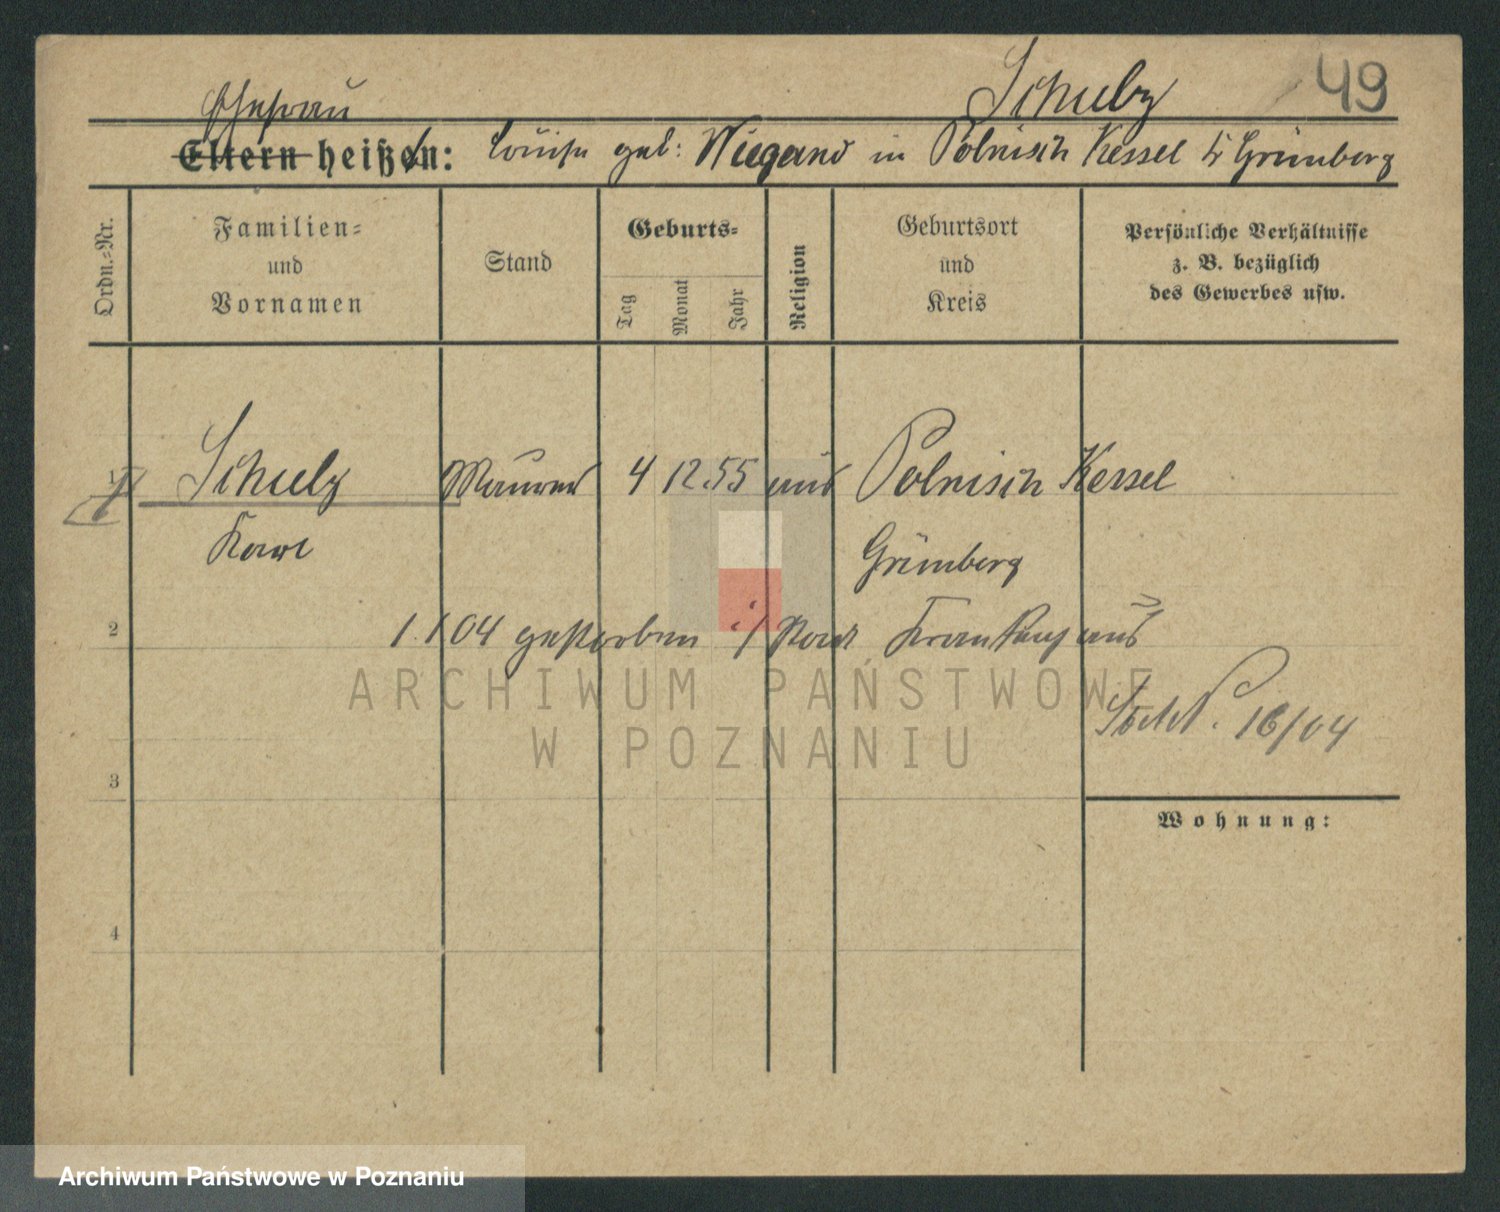 Schulz 49
Ehefrau
Eltern heißen: Louise geb: Wiegand in Polnisch Kessel Kr Grünberg
Ordn.-Nr.
Familien-
und
Vornamen
Stand
Geburts-
Tag
Monat
Jahr
Religion
Geburtsort
und
Kreis
Persönliche Verhältnisse
z. B. bezüglich
des Gewerbes usw.
1
Schulz Maurer 4 12.55 Polnisch Kessel
Karl Grünberg
2
1.1.04 gestorben i/ Stadt Krankenhaus
16/04
ARCHIWUM PAŃSTWOWE
W POZNANIU
3
Wohnung:
4
Archiwum Państwowe w Poznaniu